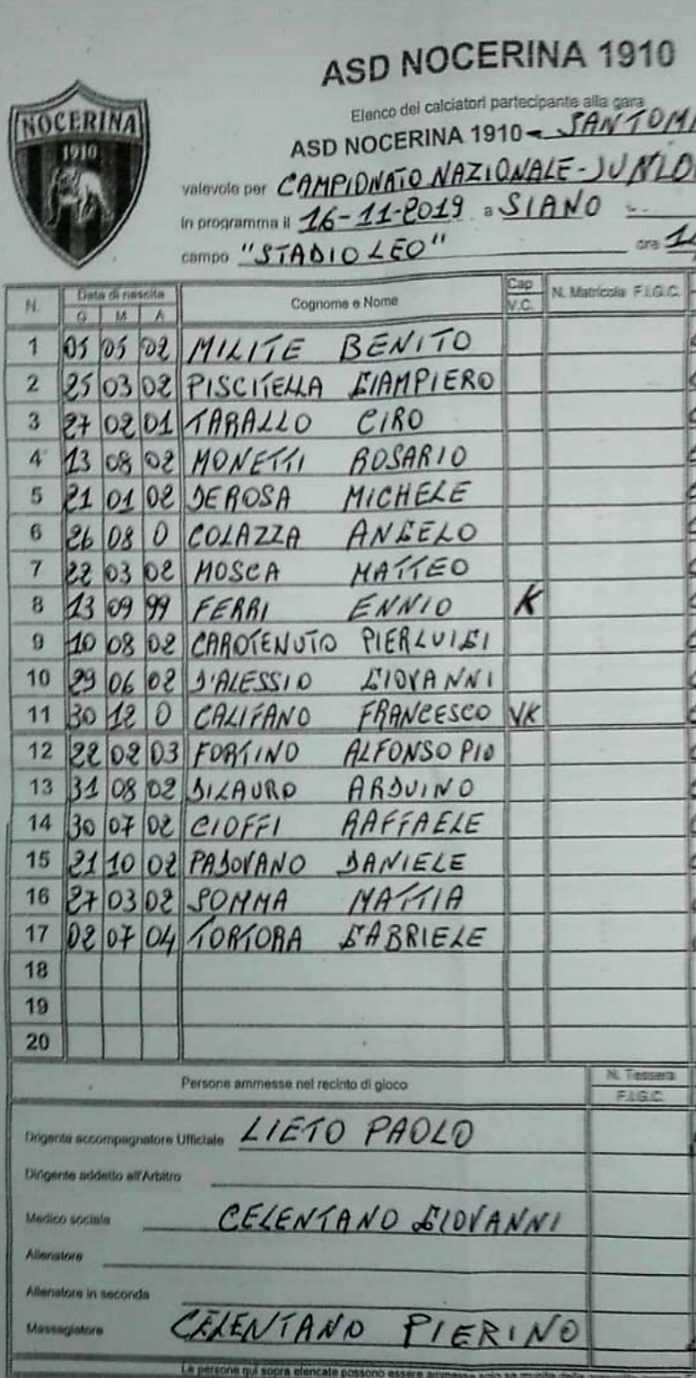 ASD NOCERINA 1910
NOCERINA
1910
Elenco dei calciatori partecipante alla gara
ASD NOCERINA 1910 - SANTOM
valevole per CAMPIONATO NAZIONALE - JUNIO
in programma il 16-11-2019 a SIANO
campo "STADIO LEO" ora 1
N. Data di nascita Cognome e Nome Cap N. Matricola F.I.G.C.
G M A V.C.
1 05 05 02 MILITE BENITO
2 25 03 02 PISCITELLA GIAMPIERO
3 27 02 01 TARALLO CIRO
4 13 08 02 MONETTI ROSARIO
5 21 01 02 DE ROSA MICHELE
6 26 08 0 COLAZZA ANGELO
7 22 03 02 MOSCA MATTEO
8 13 09 99 FERRI ENNIO K
9 10 08 02 CAROTENUTO PIERLUIGI
10 29 06 02 D'ALESSIO GIOVANNI
11 30 12 0 CALIFANO FRANCESCO VK
12 22 02 03 FORTINO ALFONSO PIO
13 31 08 02 DILAURO ARDUINO
14 30 07 02 CIOFFI RAFFAELE
15 21 10 02 PADOVANO DANIELE
16 27 03 02 SOMMA MATTIA
17 02 07 04 TORTORA GABRIELE
18
19
20
Persone ammesse nel recinto di gioco N. Tessera
F.I.G.C.
Dirigente accompagnatore Ufficiale LIETO PAOLO
Dirigente addetto all'Arbitro
Medico sociale CELENTANO GIOVANNI
Allenatore
Allenatore in seconda
Massagiatore CELENTANO PIERINO
Le persone qui sopra elencate possono essere ammesse solo se munite della